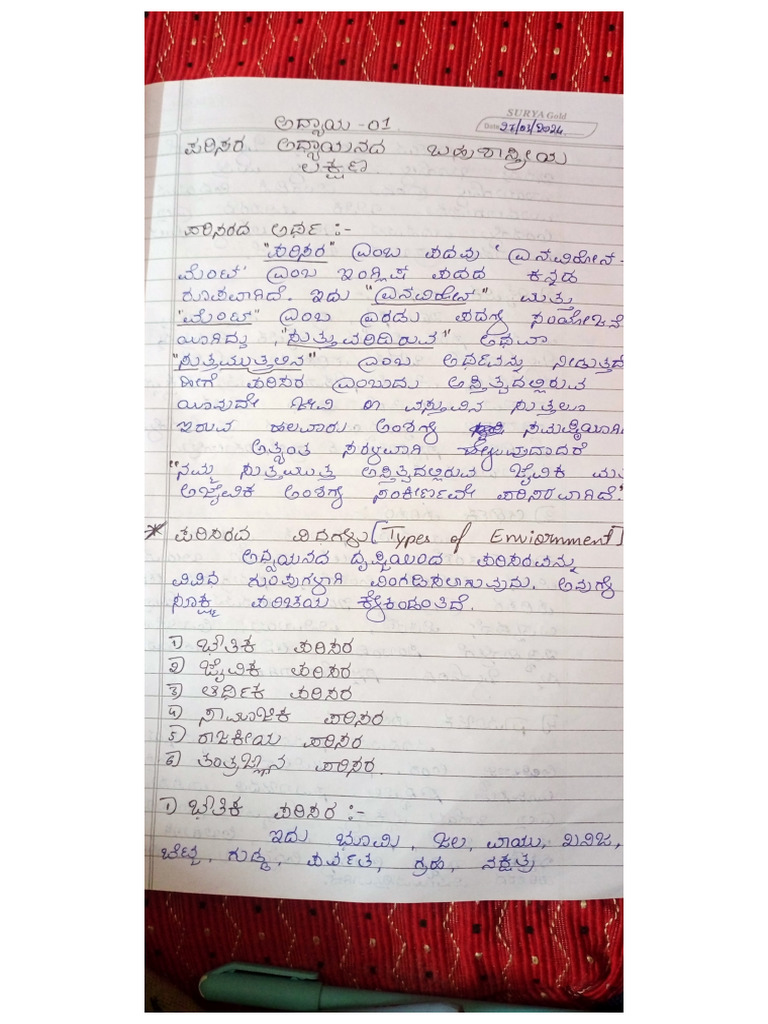 SURYA Gold
Date 27/03/2024
ಅಧ್ಯಾಯ -01
ಪರಿಸರ ಅಧ್ಯಾಯನದ ಬಹುಶಾಸ್ತ್ರೀಯ
ಲಕ್ಷಣ
ಪರಿಸರದ ಅರ್ಥ :-
"ಪರಿಸರ" ಎಂಬ ಪದವು 'ಎನವಿರೋನ-
ಮೆಂಟ' ಎಂಬ ಇಂಗ್ಲಿಷ ಪದದ ಕನ್ನಡ
ರೂಪವಾಗಿದೆ. ಇದು "ಎನವಿರೋನ್" ಮತ್ತು
"ಮೆಂಟ್" ಎಂಬ ಎರಡು ಪದಗಳ ಸಂಯೋಜನೆ
ಯಾಗಿದ್ದು, "ಸುತ್ತುವರಿದಿರುವ" ಅಥವಾ
"ಸುತ್ತಮುತ್ತಲಿನ" ಎಂಬ ಅರ್ಥವನ್ನು ನೀಡುತ್ತದೆ
ಹೀಗೆ ಪರಿಸರ ಎಂಬುದು ಅಸ್ತಿತ್ವದಲ್ಲಿರುವ
ಯಾವುದೇ ಜೀವಿ ಣ ವಸ್ತುವಿನ ಸುತ್ತಲೂ
ಇರುವ ಹಲವಾರು ಅಂಶಗಳ ಸಮಷ್ಠಿಯಾಗಿ
ಅತ್ಯಂತ ಸರಳವಾಗಿ ಹೇಳುವುದಾದರೆ
"ನಮ್ಮ ಸುತ್ತಮುತ್ತ ಅಸ್ತಿತ್ವದಲ್ಲಿರುವ ಜೈವಿಕ ಮತ
ಅಜೈವಿಕ ಅಂಶಗಳ ಸಂಕೀರ್ಣವೇ ಪರಿಸರವಾಗಿದೆ."
* ಪರಿಸರದ ವಿಧಗಳು [Types of Enviornment]
ಅಧ್ಯಯನದ ದೃಷ್ಟಿಯಿಂದ ಪರಿಸರವನ್ನು
ವಿವಿಧ ಗುಂಪುಗಳಾಗಿ ವಿಂಗಡಿಸಲಾಗುತ್ತದೆ. ಅವುಗಳ
ಸೂಕ್ಷ್ಮ ಪರಿಚಯ ಕೆಳಕಂಡಂತಿದೆ.
1) ಭೌತಿಕ ಪರಿಸರ
2) ಜೈವಿಕ ಪರಿಸರ
3) ಆರ್ಥಿಕ ಪರಿಸರ
4) ಸಾಮಾಜಿಕ ಪರಿಸರ
5) ರಾಜಕೀಯ ಪರಿಸರ
6) ತಂತ್ರಜ್ಞಾನ ಪರಿಸರ.
1) ಭೌತಿಕ ಪರಿಸರ :-
ಇದು ಭೂಮಿ, ಜಲ, ವಾಯು, ಖನಿಜ,
ಬೆಟ್ಟ, ಗುಡ್ಡ, ಪರ್ವತ, ಗ್ರಹ, ನಕ್ಷತ್ರ